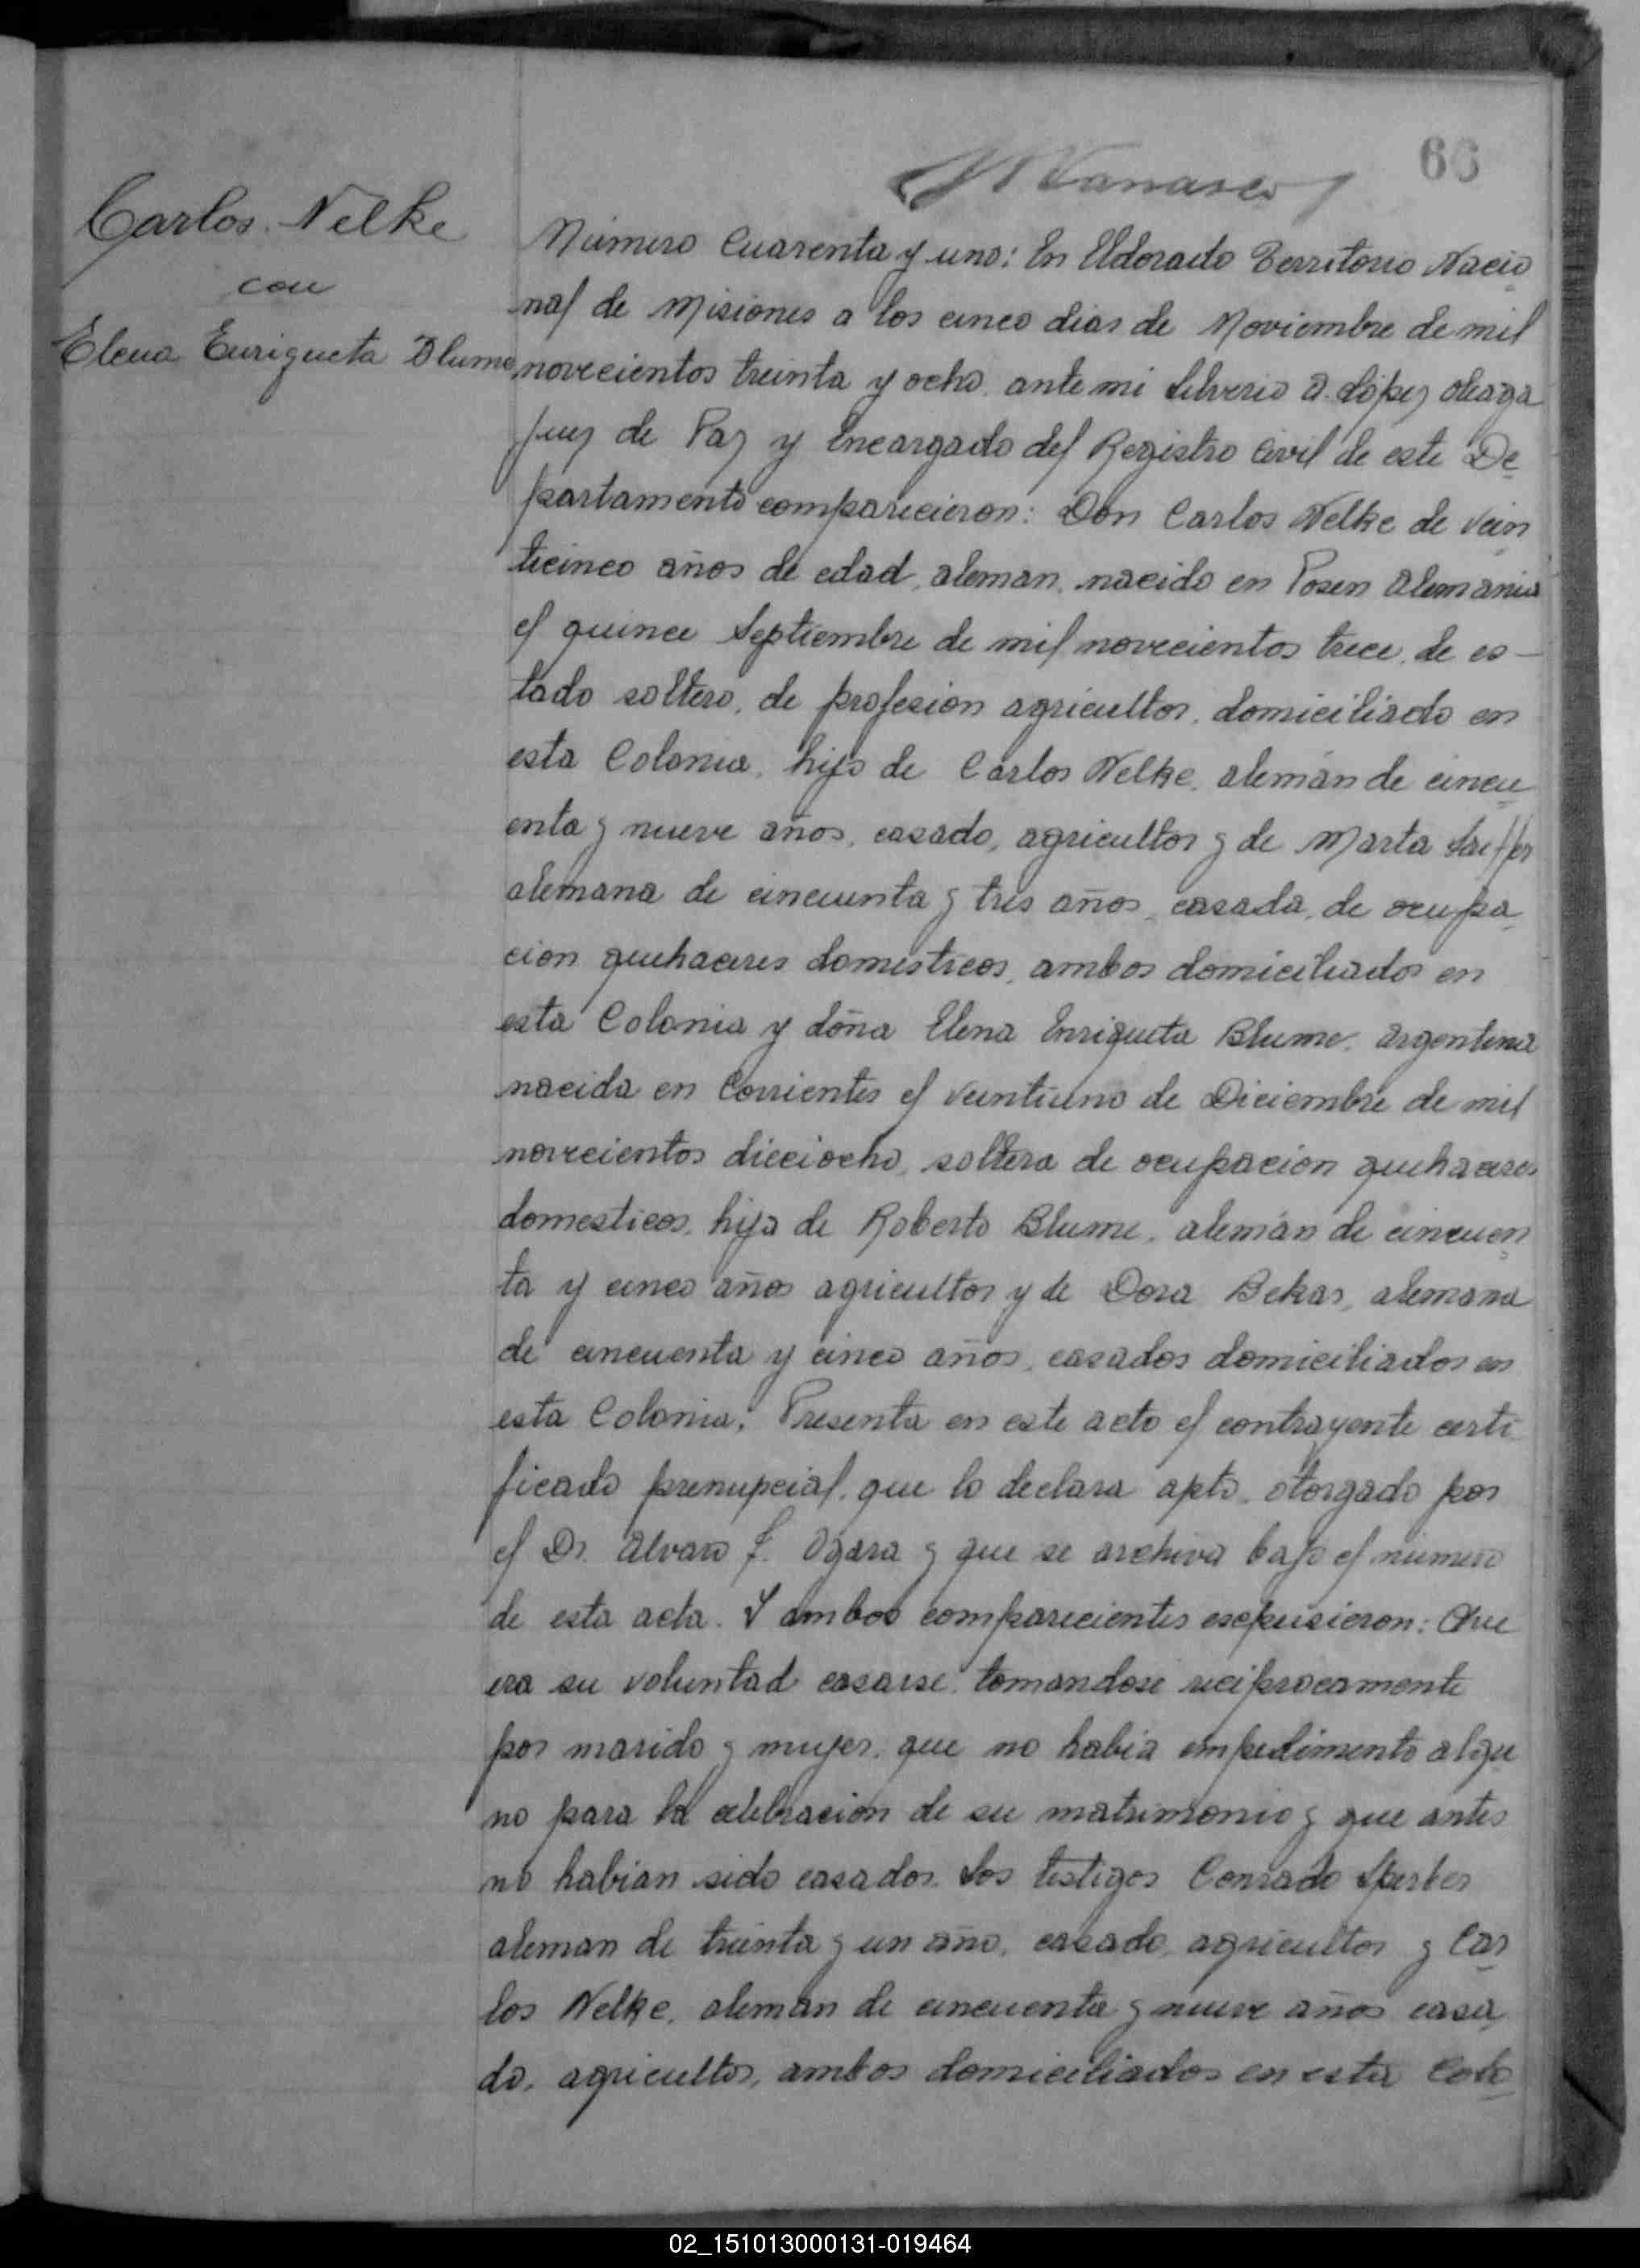 66
Carlos Nelke
con
Elena Enriqueta Blume
Número Cuarenta y uno: En Eldorado Territorio Nacio
nal de Misiones a los cinco dias de Noviembre de mil
novecientos treinta y ocho, ante mi Silverio A. López Oleaga
Juez de Paz y Encargado del Registro Civil de este De
partamento comparecieron: Don Carlos Nelke de vein
ticinco años de edad, aleman, nacido en Posen Alemania
el quince Septiembre de mil novecientos trece, de es-
tado soltero, de profesion agricultor, domiciliado en
esta Colonia, hijo de Carlos Nelke, alemán de cincu
enta y nueve años, casado, agricultor y de Marta
alemana de cincuenta y tres años, casada, de ocupa
cion quehaceres domésticos, ambos domiciliados en
esta Colonia y doña Elena Enriqueta Blume, argentina
nacida en Corrientes el veintiuno de Diciembre de mil
novecientos dieciocho, soltera de ocupacion quehaceres
domesticos, hija de Roberto Blume, alemán de cincuen
ta y cinco años agricultor y de Dora Bekar, alemana
de cincuenta y cinco años, casados domiciliados en
esta Colonia. Presenta en este acto el contrayente certi
ficado prenupcial, que lo declara apto, otorgado por
el Dr. Alvaro F. Ogara y que se archiva bajo el número
de esta acta. Y ambos comparecientes escpusieron: Que
era su voluntad casarse, tomandose reciprocamente
por marido y mujer, que no habia impedimento algu
no para la celebracion de su matrimonio y que antes
no habian sido casados. Los testigos Conrado Sperber
aleman de treinta y un año, casado, agricultor y Car
los Nelke, aleman de cincuenta y nueve años casa
do, agricultor, ambos domiciliados en esta Colo
02_151013000131-019464